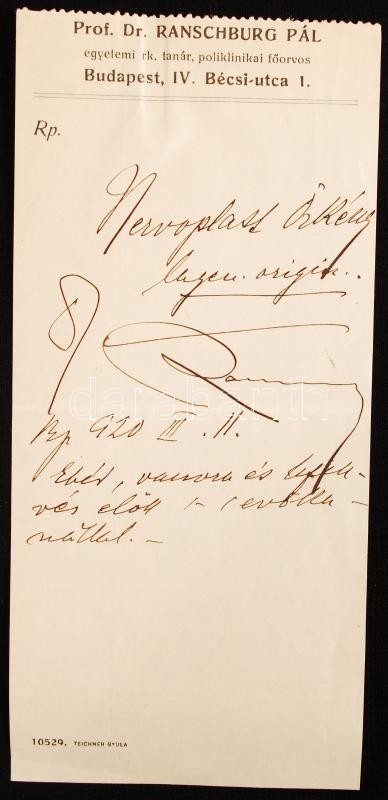 Prof. Dr. RANSCHBURG PÁL
egyetemi rk. tanár, poliklinikai főorvos
Budapest, IV. Bécsi-utca 1.
Rp.
Nervoplast Örkény
lagen. origin.
Bp 920 III. 11.
Ebéd, vacsora és
vés előtt 1-1 evőka-
nállal.-
darabanth
10529. TEICHNER GYULA